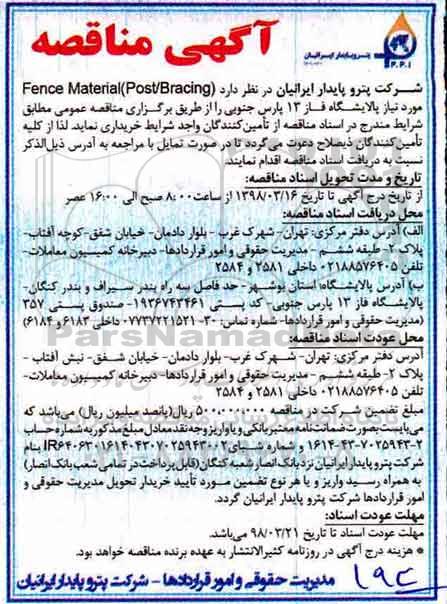 آگهی مناقصه
پترو پایدار ایرانیان
P.P.I
شرکت پترو پایدار ایرانیان در نظر دارد Fence Material(Post/Bracing)
مورد نیاز پالایشگاه فاز ۱۳ پارس جنوبی را از طریق برگزاری مناقصه عمومی مطابق
شرایط مندرج در اسناد مناقصه از تأمین‌کنندگان واجد شرایط خریداری نماید. لذا از کلیه
تأمین‌کنندگان ذیصلاح دعوت می‌گردد تا در صورت تمایل با مراجعه به آدرس ذیل‌الذکر
نسبت به دریافت اسناد مناقصه اقدام نمایند.
تاریخ و مدت تحویل اسناد مناقصه:
از تاریخ درج آگهی تا تاریخ ۱۳۹۸/۰۳/۱۶ از ساعت ۸:۰۰ صبح الی ۱۶:۰۰ عصر
محل دریافت اسناد مناقصه:
الف) آدرس دفتر مرکزی: تهران- شهرک غرب- بلوار دادمان- خیابان شفق-کوچه آفتاب-
پلاک ۲- طبقه ششم - مدیریت حقوقی و امور قراردادها- دبیرخانه کمیسیون معاملات-
تلفن ۰۲۱۸۸۵۷۶۴۰۵ داخلی ۲۵۸۱ و ۲۵۸۴
ب) آدرس پالایشگاه استان بوشهر- حد فاصل سه راه بندر سیراف و بندر کنگان-
پالایشگاه فاز ۱۳ پارس جنوبی- کد پستی ۱۹۳۶۷۴۳۴۶۱- صندوق پستی ۳۵۷
(مدیریت حقوقی و امور قراردادها- شماره تماس: ۳۰-۰۷۷۳۷۲۲۱۵۲۱ داخلی ۶۱۸۳ و ۶۱۸۴)
محل عودت اسناد مناقصه:
آدرس دفتر مرکزی: تهران- شهرک غرب- بلوار دادمان- خیابان شفق- نبش آفتاب -
پلاک ۲- طبقه ششم - مدیریت حقوقی و امور قراردادها-دبیرخانه کمیسیون معاملات-
تلفن ۰۲۱۸۸۵۷۶۴۰۵ داخلی ۲۵۸۱ و ۲۵۸۴
مبلغ تضمین شرکت در مناقصه ۵۰۰،۰۰۰،۰۰۰ ریال(پانصد میلیون ریال) می‌باشد که
می‌بایست بصورت ضمانت‌نامه معتبر بانکی و یا واریز وجه نقد معادل مبلغ مذکور به شماره حساب
و شماره شبای
بنام
شرکت پترو پایدار ایرانیان نزد بانک انصار شعبه کنگان(قابل پرداخت در تمامی شعب بانک انصار)
به همراه رسید واریز و یا هر نوع تضمین مورد تأیید خریدار تحویل مدیریت حقوقی و
امور قراردادها شرکت پترو پایدار ایرانیان گردد.
مهلت عودت اسناد:
مهلت عودت اسناد تا تاریخ ۹۸/۰۳/۲۱ می‌باشد.
* هزینه درج آگهی در روزنامه کثیرالانتشار به عهده برنده مناقصه خواهد بود.
مدیریت حقوقی و امور قراردادها - شرکت پترو پایدار ایرانیان
ParsNamadData